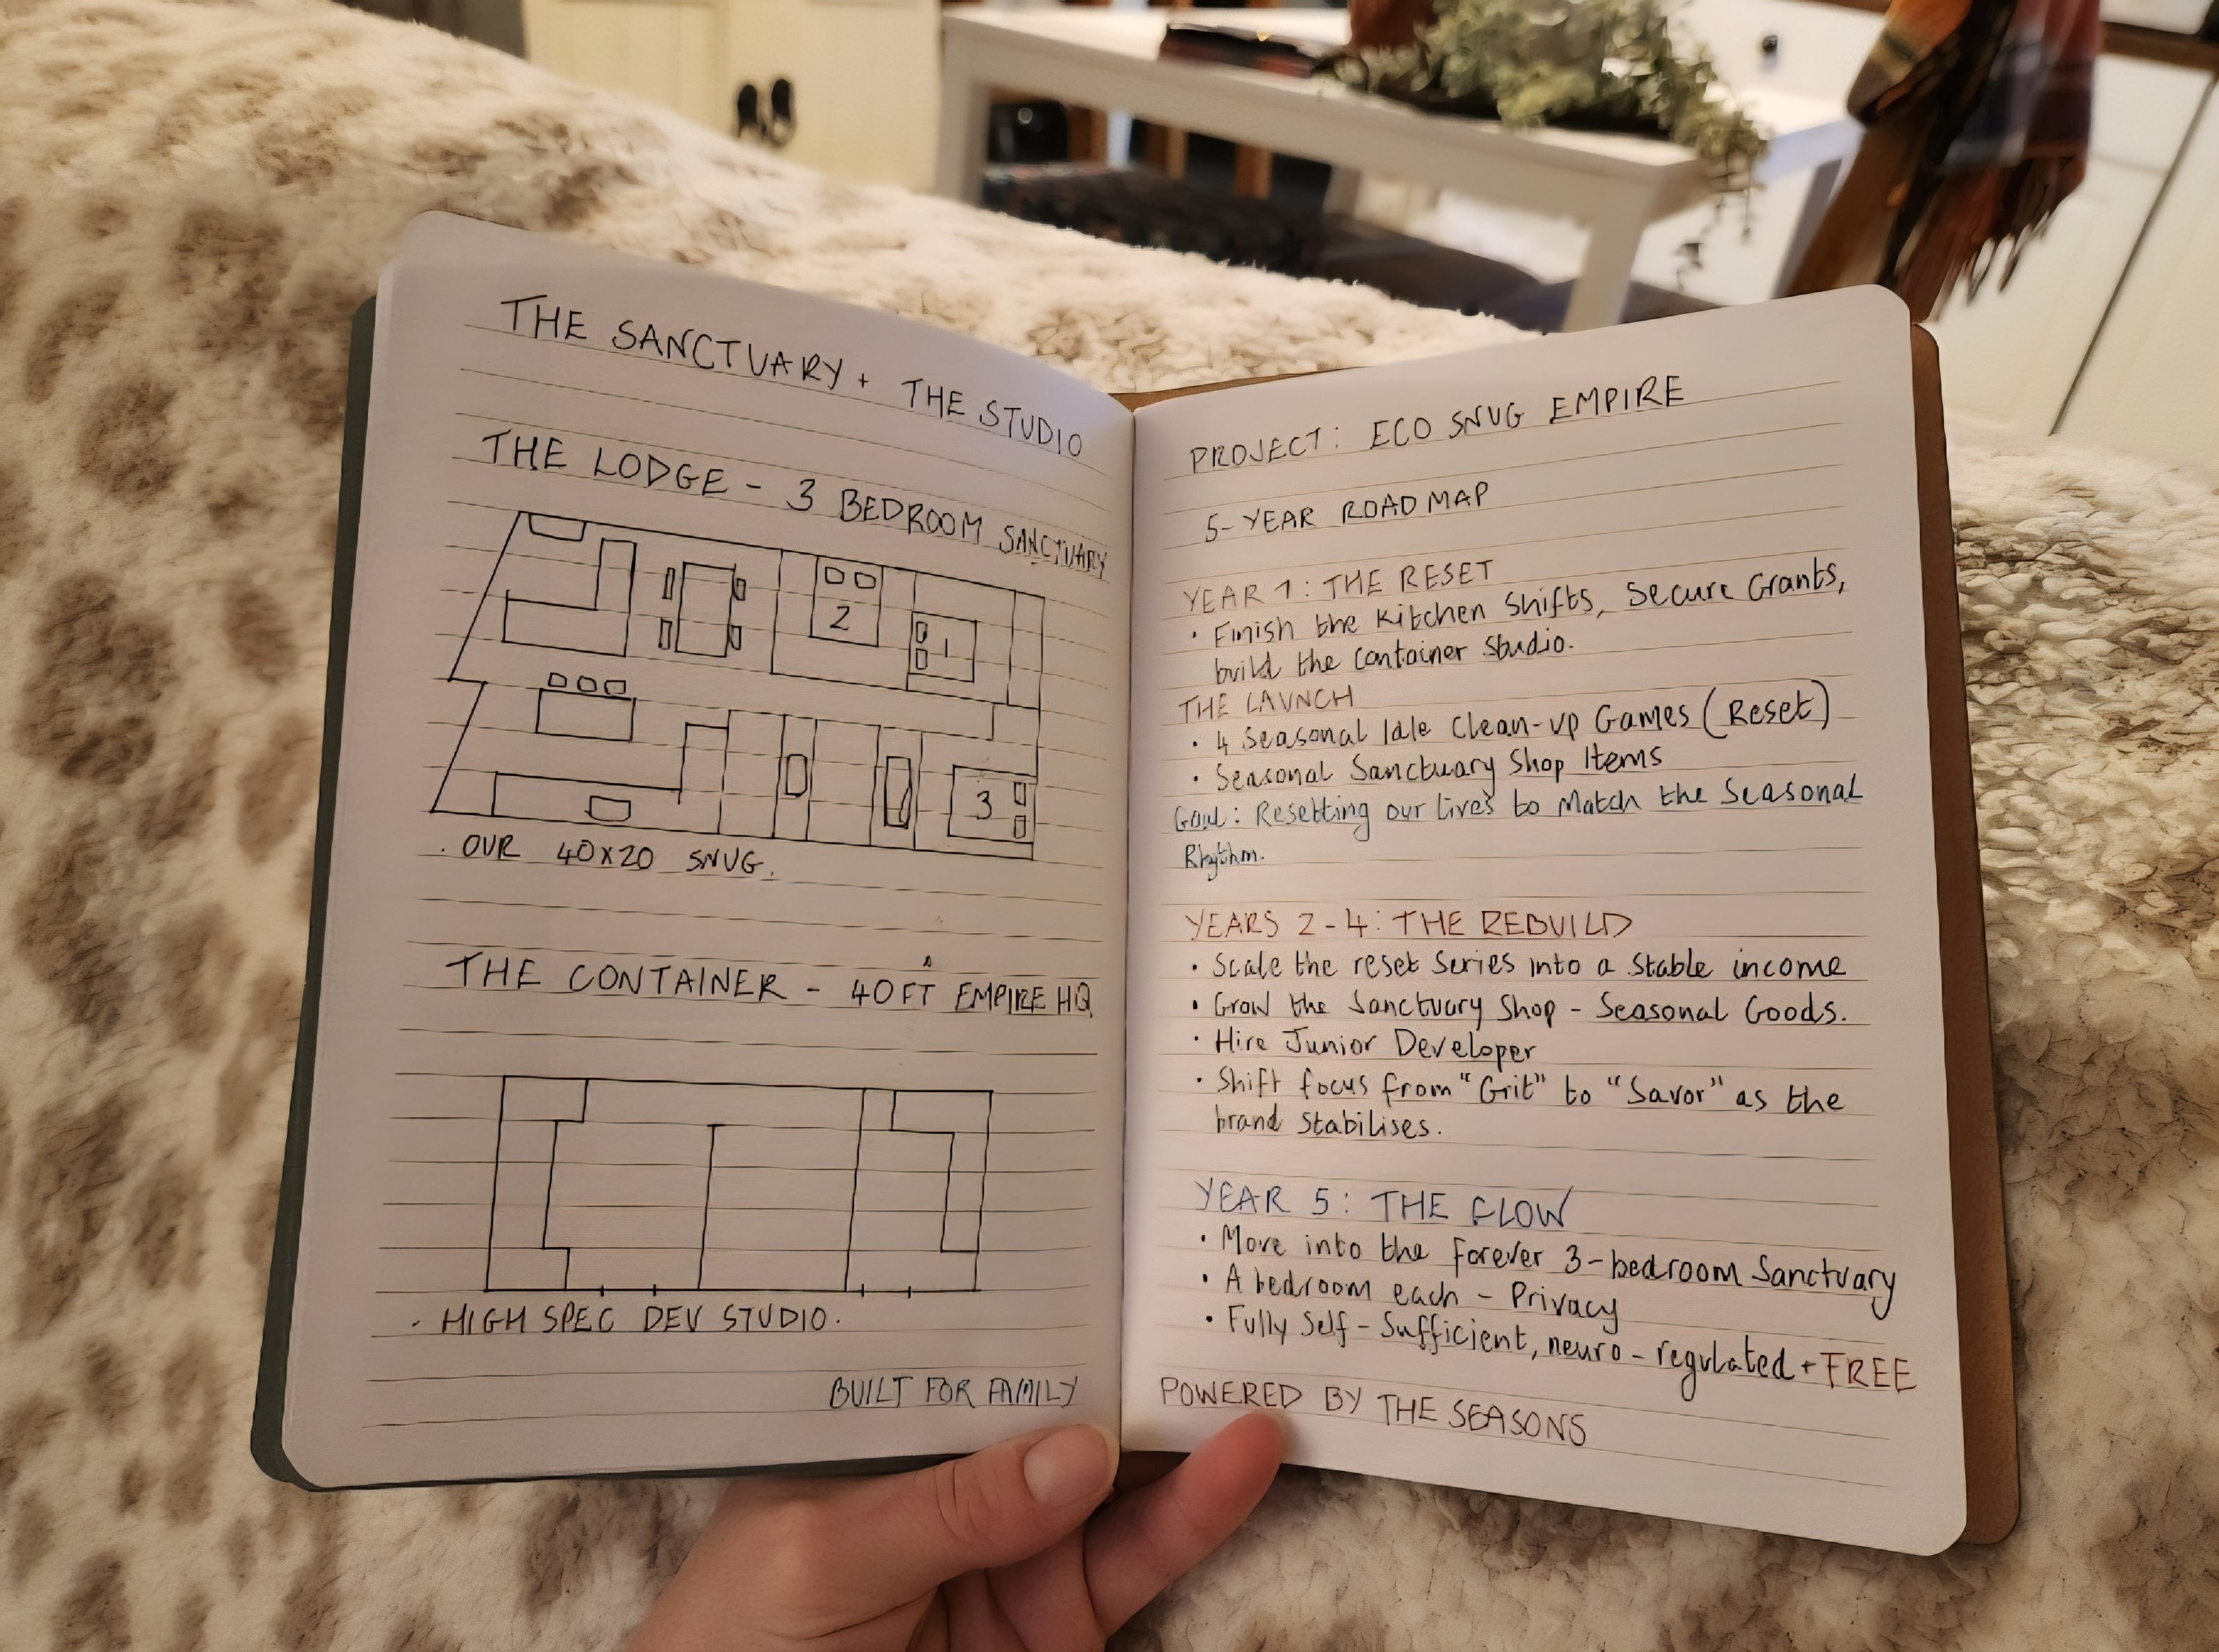 THE SANCTUARY + THE STUDIO
THE LODGE - 3 BEDROOM SANCTUARY
2
1
3
. OUR 40X20 SNUG.
THE CONTAINER - 40FT EMPIRE HQ
. HIGH SPEC DEV STUDIO.
BUILT FOR FAMILY
PROJECT: ECO SNUG EMPIRE
5-YEAR ROAD MAP
YEAR 1: THE RESET
· Finish the Kitchen Shifts, Secure Grants,
build the Container Studio.
THE LAUNCH
· 4 Seasonal Idle Clean-up Games (Reset)
· Seasonal Sanctuary Shop Items
Goal: Resetting our lives to Match the Seasonal
Rhythm.
YEARS 2-4: THE REBUILD
· Scale the reset series into a stable income
· Grow the Sanctuary Shop - Seasonal Goods.
· Hire Junior Developer
· Shift focus from "Grit" to "Savor" as the
brand stabilises.
YEAR 5: THE FLOW
· Move into the forever 3-bedroom Sanctuary
· A bedroom each - Privacy
· Fully Self-Sufficient, neuro-regulated + FREE
POWERED BY THE SEASONS